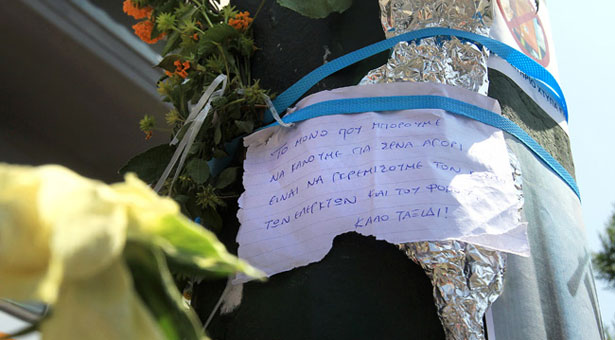 ΤΟ ΜΟΝΟ ΠΟΥ ΜΠΟΡΟΥΜΕ
ΝΑ ΚΑΝΟΥΜΕ ΓΙΑ ΣΕΝΑ ΑΓΟΡΙ
ΕΙΝΑΙ ΝΑ ΓΚΡΕΜΙΣΟΥΜΕ ΤΟΝ
ΤΩΝ ΕΛΕΓΚΤΩΝ ΚΑΙ ΤΟΥ
ΚΑΛΟ ΤΑΞΙΔΙ!